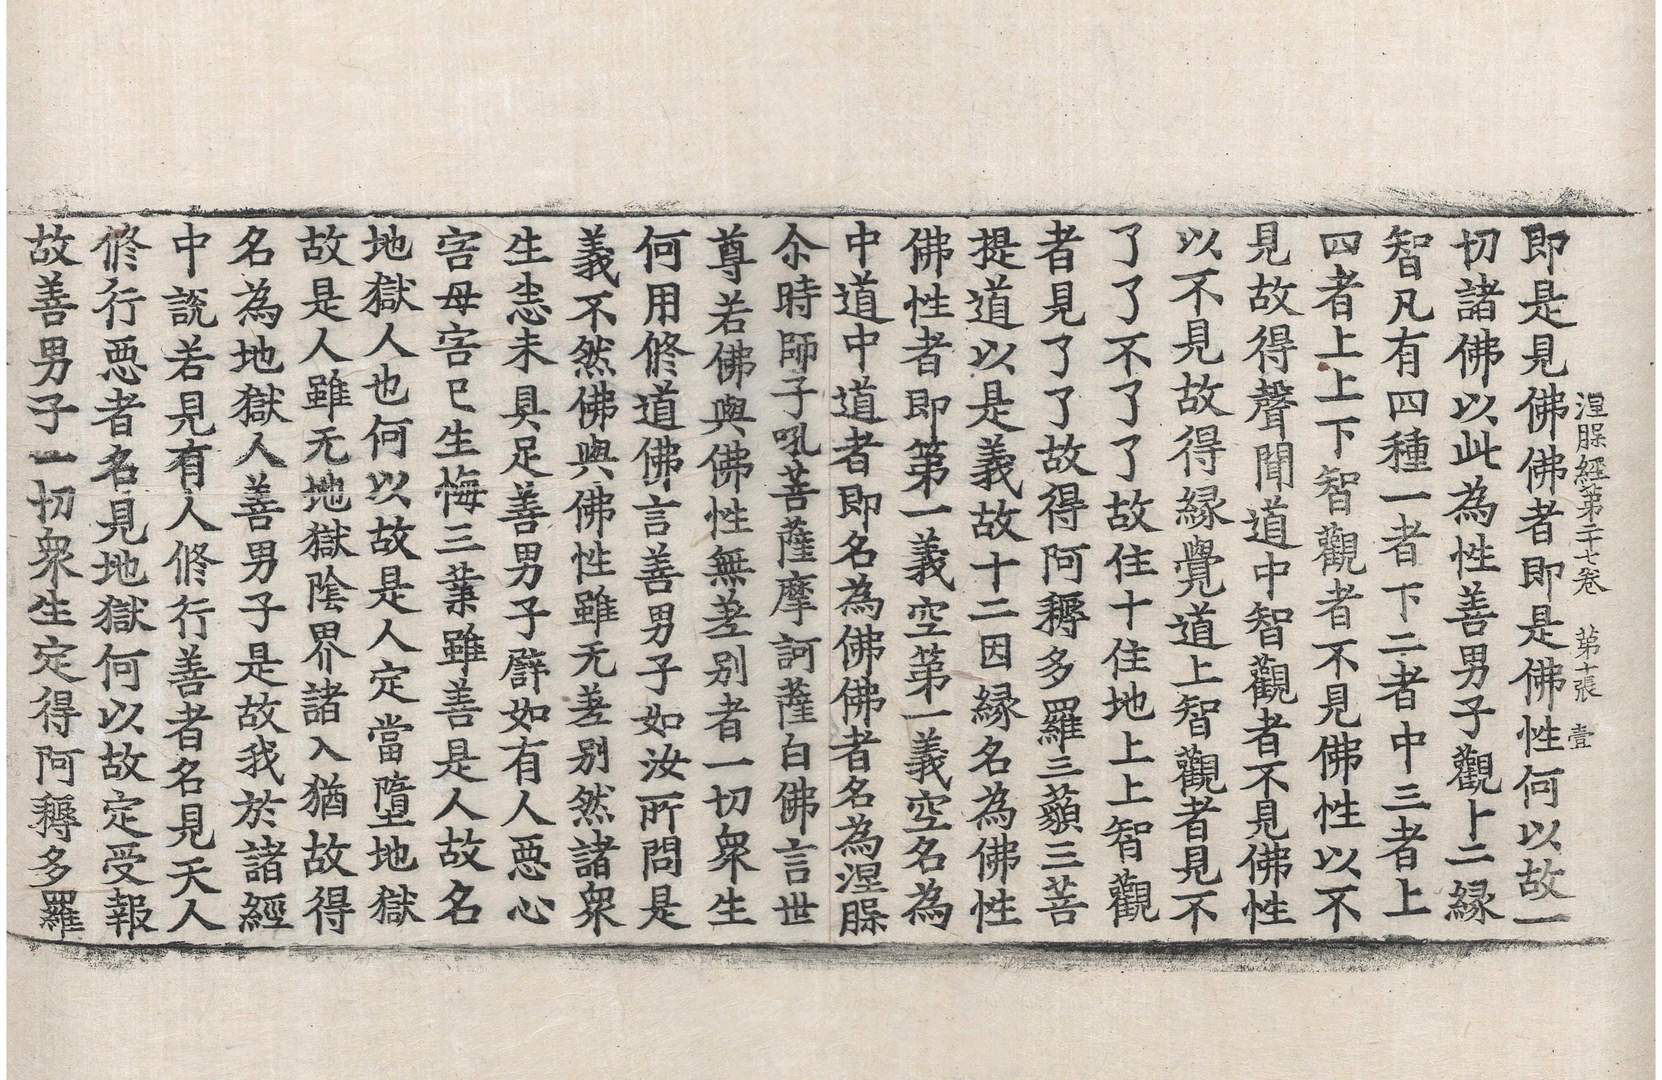 涅槃經第二十七卷 第十張 壹
即是見佛佛者即是佛性何以故一
切諸佛以此為性善男子觀十二緣
智凡有四種一者下二者中三者上
四者上上下智觀者不見佛性以不
見故得聲聞道中智觀者不見佛性
以不見故得緣覺道上智觀者見不
了了不了了故住十住地上上智觀
者見了了故得阿耨多羅三藐三菩
提道以是義故十二因緣名為佛性
佛性者即第一義空第一義空名為
中道中道者即名為佛佛者名為涅槃
尒時師子吼菩薩摩訶薩白佛言世
尊若佛與佛性無差別者一切眾生
何用修道佛言善男子如汝所問是
義不然佛與佛性雖无差別然諸眾
生悉未具足善男子譬如有人惡心
害母害已生悔三業雖善是人故名
地獄人也何以故是人定當墮地獄
故是人雖无地獄陰界諸入猶故得
名為地獄人善男子是故我於諸經
中說若見有人修行善者名見天人
修行惡者名見地獄何以故定受報
故善男子一切眾生定得阿耨多羅